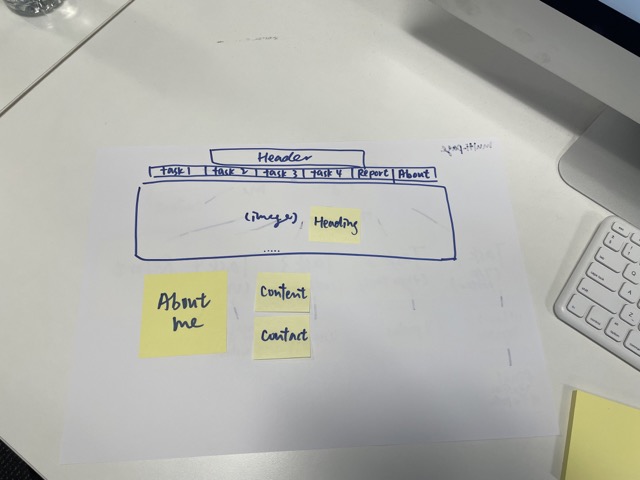 Header
Task 1 Task 2 Task 3 Task 4 Report About
(image)
Heading
.....
About
me
Content
Contact